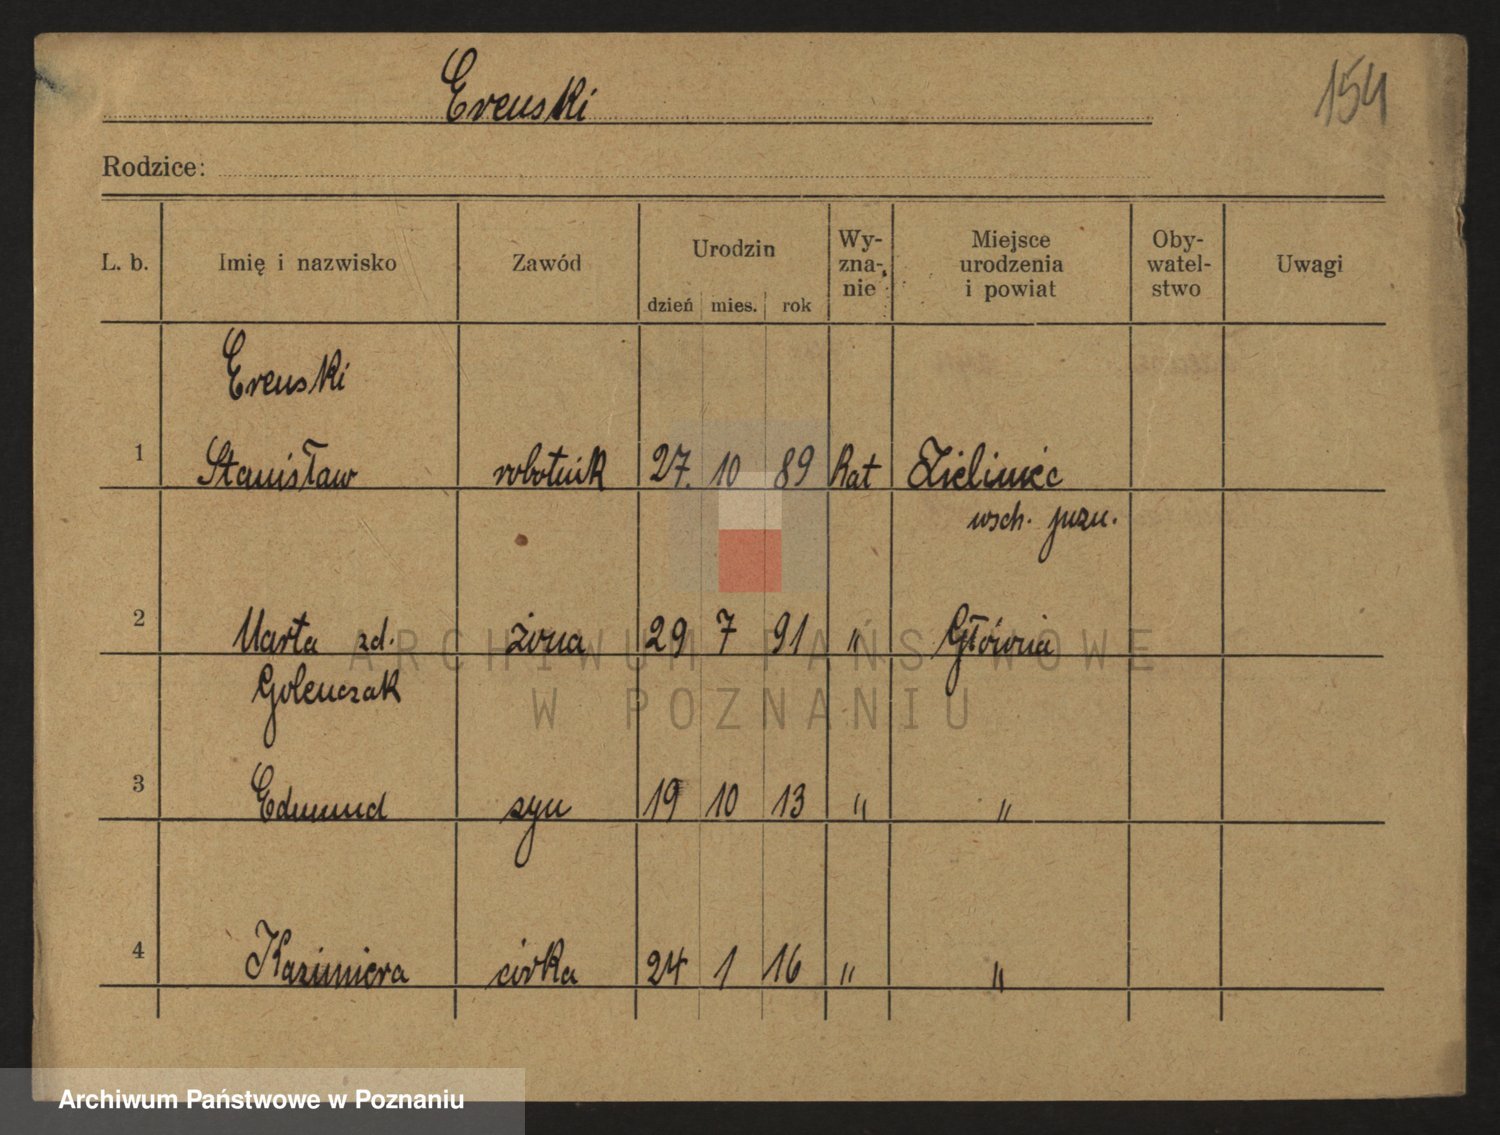 Erenski
154
Rodzice:
L. b. Imię i nazwisko Zawód Urodzin dzień mies. rok Wy-zna-nie Miejsce urodzenia i powiat Oby-watel-stwo Uwagi
Erenski
1 Stanisław robotnik 27. 10 89 kat Zieliniec
wsch. pozn.
2 Marta zd. żona 29 7 91 " Główna
Golenczak
3 Edmund syn 19 10 13 " "
4 Kazimiera córka 24 1 16 " "
ARCHIWUM PAŃSTWOWE
W POZNANIU
Archiwum Państwowe w Poznaniu